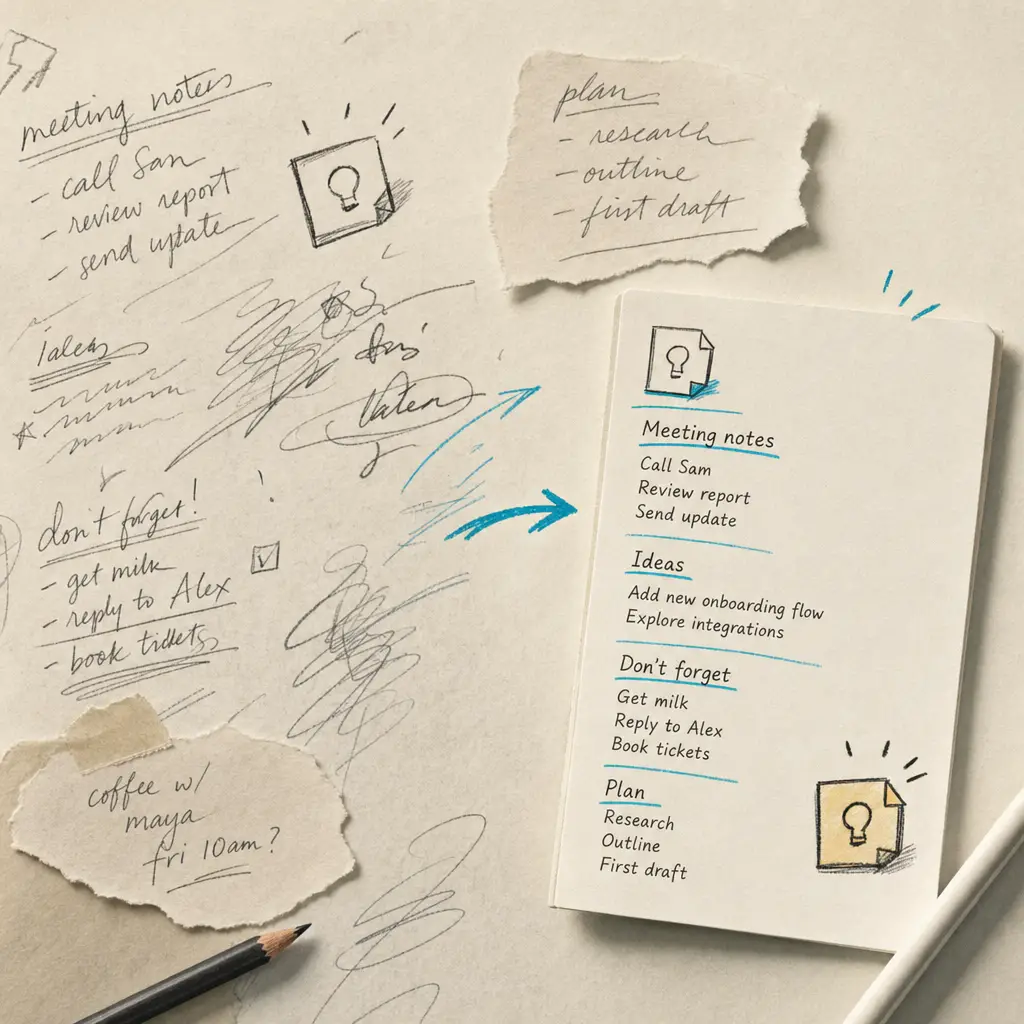 meeting notes
- call Sam
- review report
- send update
ideas
don't forget!
- get milk
- reply to Alex
- book tickets
coffee w/
maya
fri 10am?
plan
- research
- outline
- first draft
Meeting notes
Call Sam
Review report
Send update
Ideas
Add new onboarding flow
Explore integrations
Don't forget
Get milk
Reply to Alex
Book tickets
Plan
Research
Outline
First draft